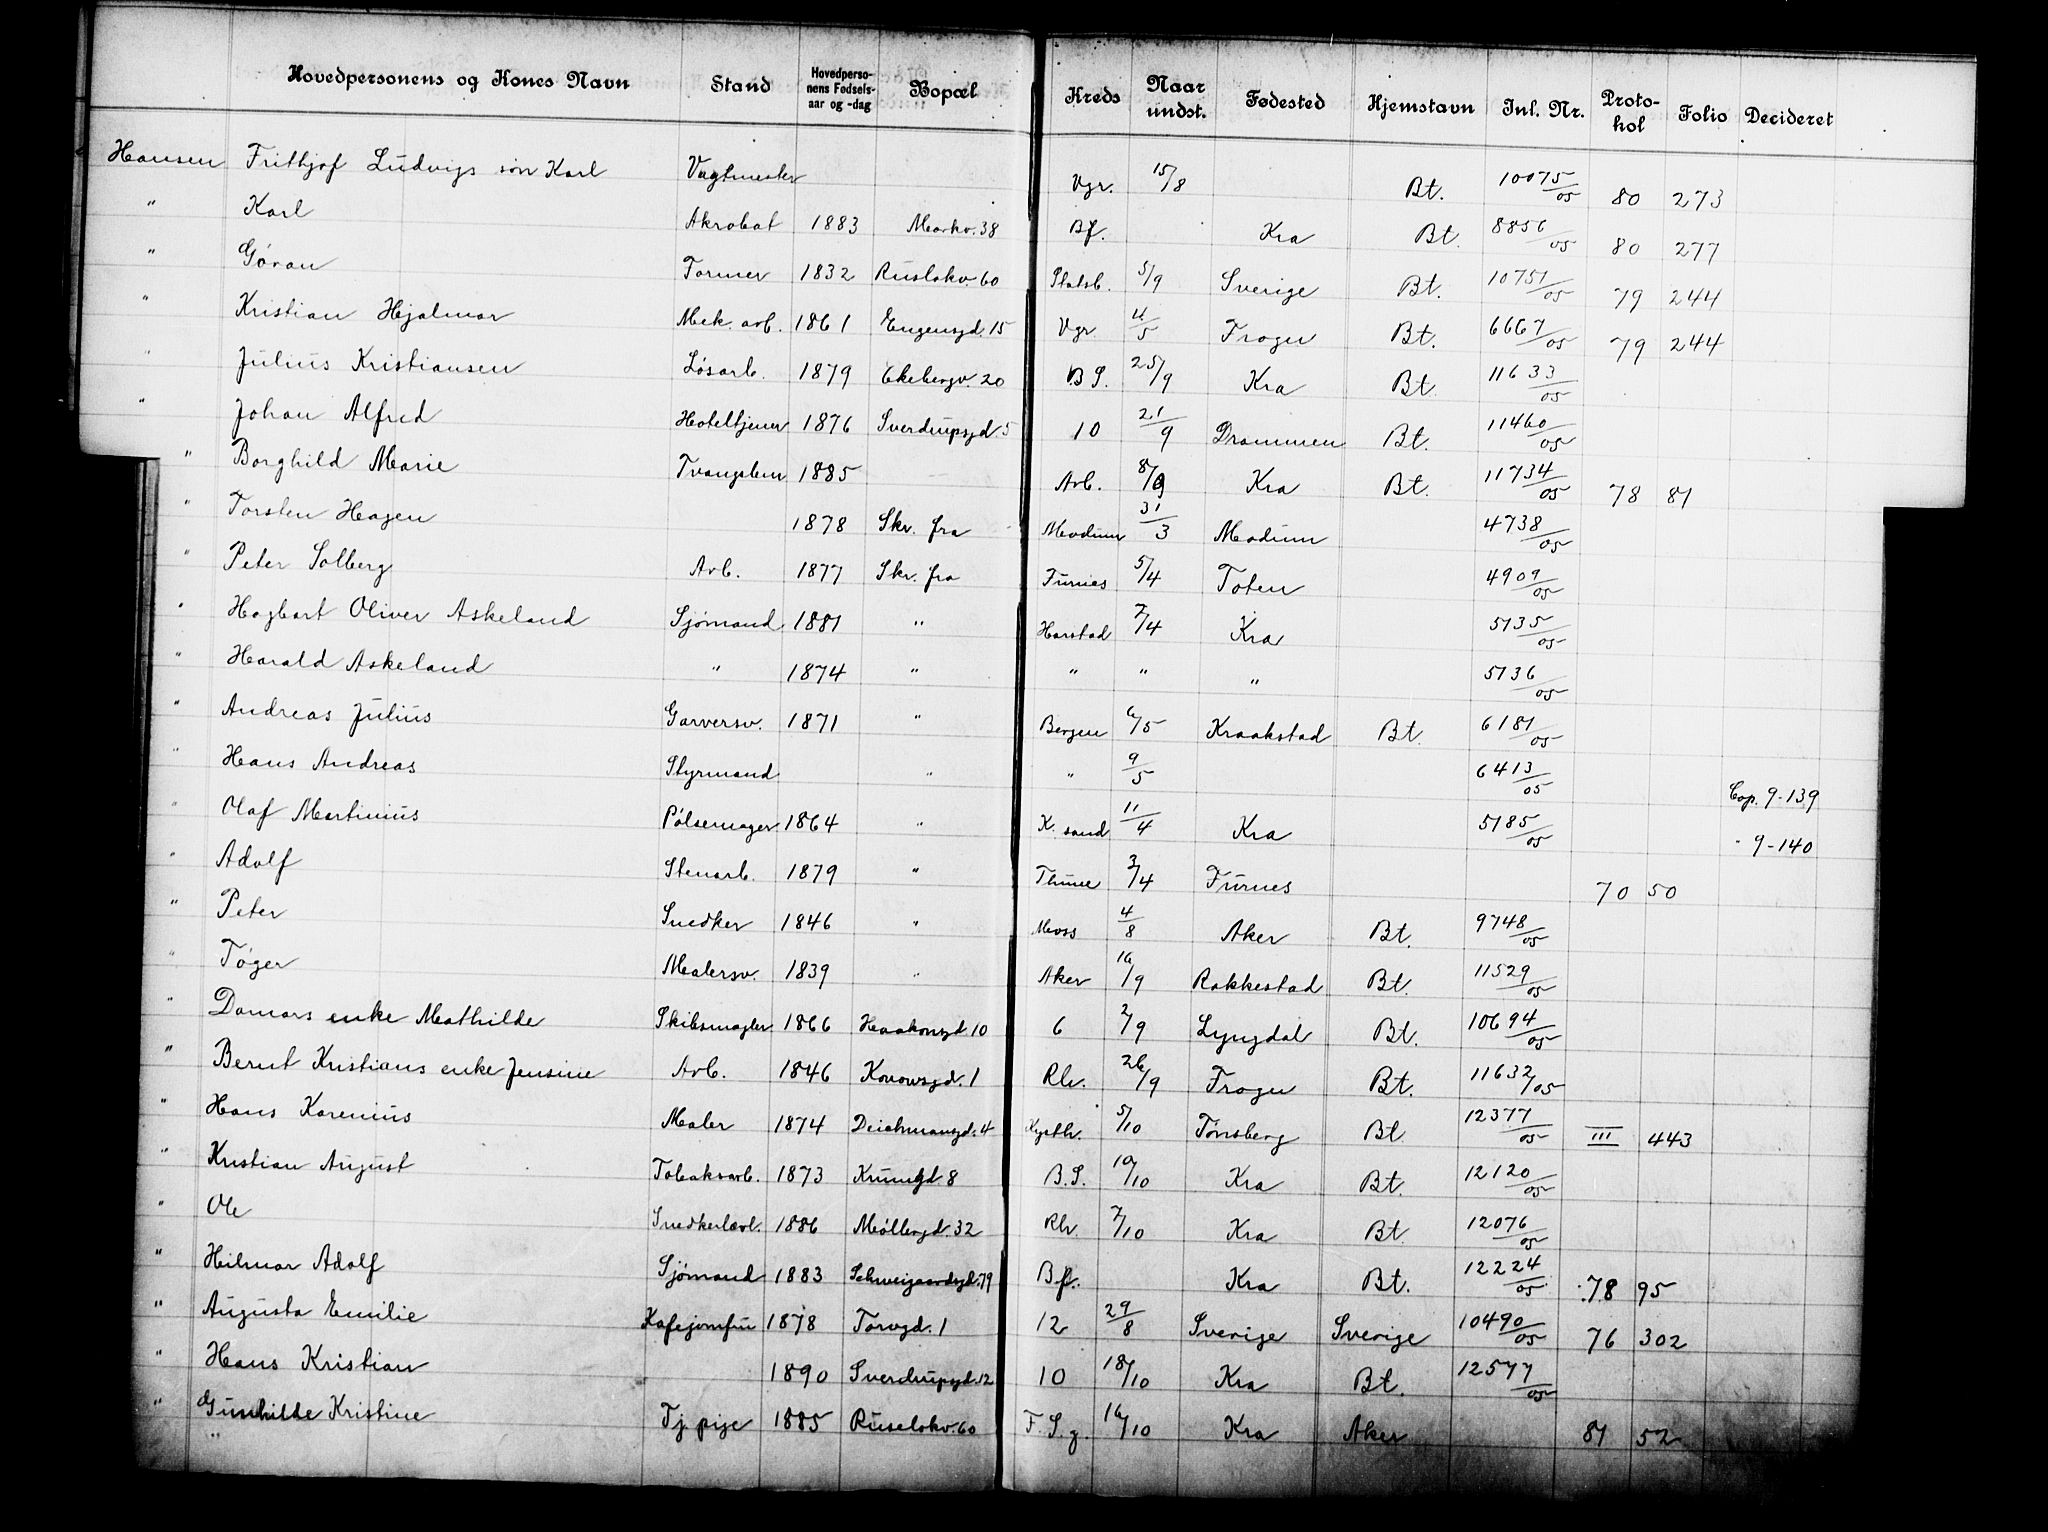 Hovedpersonens og Kones Navn Stand Hovedpersonens Fødsels-aar og -dag Bopæl Kreds Naar undst. Fødested Hjemstavn Inl. Nr. Protokol Folio Decideret
Hansen Frithjof Ludvigs søn Karl Vagtmester Vgr. 15/8 Bt. 10075/05 80 273
" Karl Akrobat 1883 Markv. 38 Bf. Kra Bt. 8856/05 80 277
" Gøran Former 1832 Ruslokv. 60 Statsb. 5/9 Sverige Bt. 10751/05 79 244
" Kristian Hjalmar Mek. arb. 1861 Eugensgd. 15 Vgr. 4/5 Frogn Bt. 6667/05 79 244
" Julius Kristiansen Løsarb. 1879 Ekebergv. 20 B S. 25/9 Kra Bt. 11633/05
" Johan Alfred Hoteltjener 1876 Sverdrupsgd. 5 10 21/9 Drammen Bt. 11460/05
" Borghild Marie Tvangslem 1885 Arb. 8/9 Kra Bt. 11734/05 78 81
" Torsten Hagen 1878 Skr. fra Modum 31/3 Modum 4738/05
" Peter Solberg Arb. 1877 Skr. fra Furnes 5/4 Toten 4909/05
" Hagbart Oliver Askeland Sjømand 1881 " Harstad 7/4 Kra 5135/05
" Harald Askeland " 1874 " " " " 5136/05
" Andreas Julius Garversv. 1871 " Bergen 6/5 Kraakstad Bt. 6181/05
" Hans Andreas Styrmand " " 9/5 6413/05 Cop. 9-139
" Olaf Martinius Pølsemager 1864 " K. sand 11/4 Kra 5185/05 " 9-140
" Adolf Stenarb. 1879 " Thune 3/4 Furnes 70 50
" Peter Snedker 1846 " Moss 4/8 Aker Bt. 9748/05
" Tøger Malersv. 1839 " Aker 16/9 Rakkestad Bt. 11529/05
" Damars enke Mathilde Skibsmagler 1866 Haakonsgd. 10 6 2/9 Lyngdal Bt. 10694/05
" Bernt Kristians enke Jensine Arb. 1846 Konowsgd. 1 Rh. 26/9 Frogn Bt. 11632/05
" Hans Karenius Maler 1874 Deichmansgd. 4 Kysth. 5/10 Tønsberg Bt. 12377/05 III 443
" Kristian August Tobaksarb. 1873 Krumgd. 8 B. S. 10/10 Kra Bt. 12120/05
" Ole Snedkerlærl. 1886 Møllergd. 32 Rh. 7/10 Kra Bt. 12076/05
" Hilmar Adolf Sjømand 1883 Schweigaardsgd. 79 Bf. Kra Bt. 12224/05 78 95
" Augusta Emilie Kafejomfru 1878 Torvgd. 1 12 29/8 Sverige Sverige 10490/05 76 302
" Hans Kristian 1890 Sverdrupsgd. 12 10 18/10 Kra Bt. 12577/05
" Gunhilde Kristine Tj. pige 1885 Ruselokv. 60 F. S. g. 16/10 Kra Aker 81 52
"